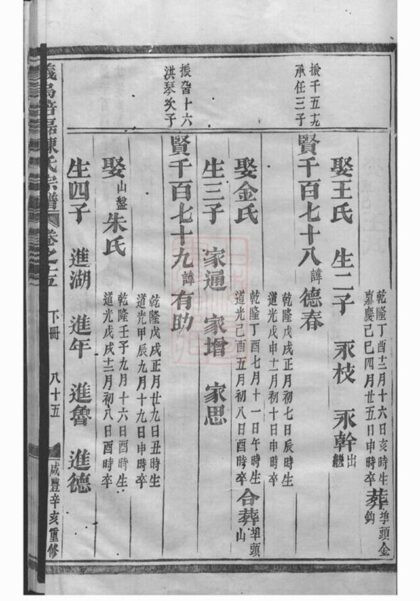 乾隆丁酉十二月十六日亥時生
嘉慶己巳四月廿五日申時卒
葬 準頭金鈎
娶王氏 生二子 永枝 永幹 出繼
振千五十九
承任三子
賢千百七十八 諱 德春
乾隆戊戌正月初七日辰時生
道光戊申十一月初十日申時卒
娶金氏
乾隆丁酉七月十一日午時生
道光己酉五月初八日酉時卒
合葬 準頭山
生三子 家通 家增 家思
振 百十六
洪琴次子
賢千百七十九 諱 有助
乾隆戊戌正月廿九日丑時生
道光甲辰九月十九日申時卒
娶 山盤 朱氏
乾隆壬子九月十六日酉時生
道光戊戌十二月初八日酉時卒
生四子 進湖 進年 進魯 進德
義烏 陳氏宗譜 卷之五 下冊 八十五 咸豐辛亥重修